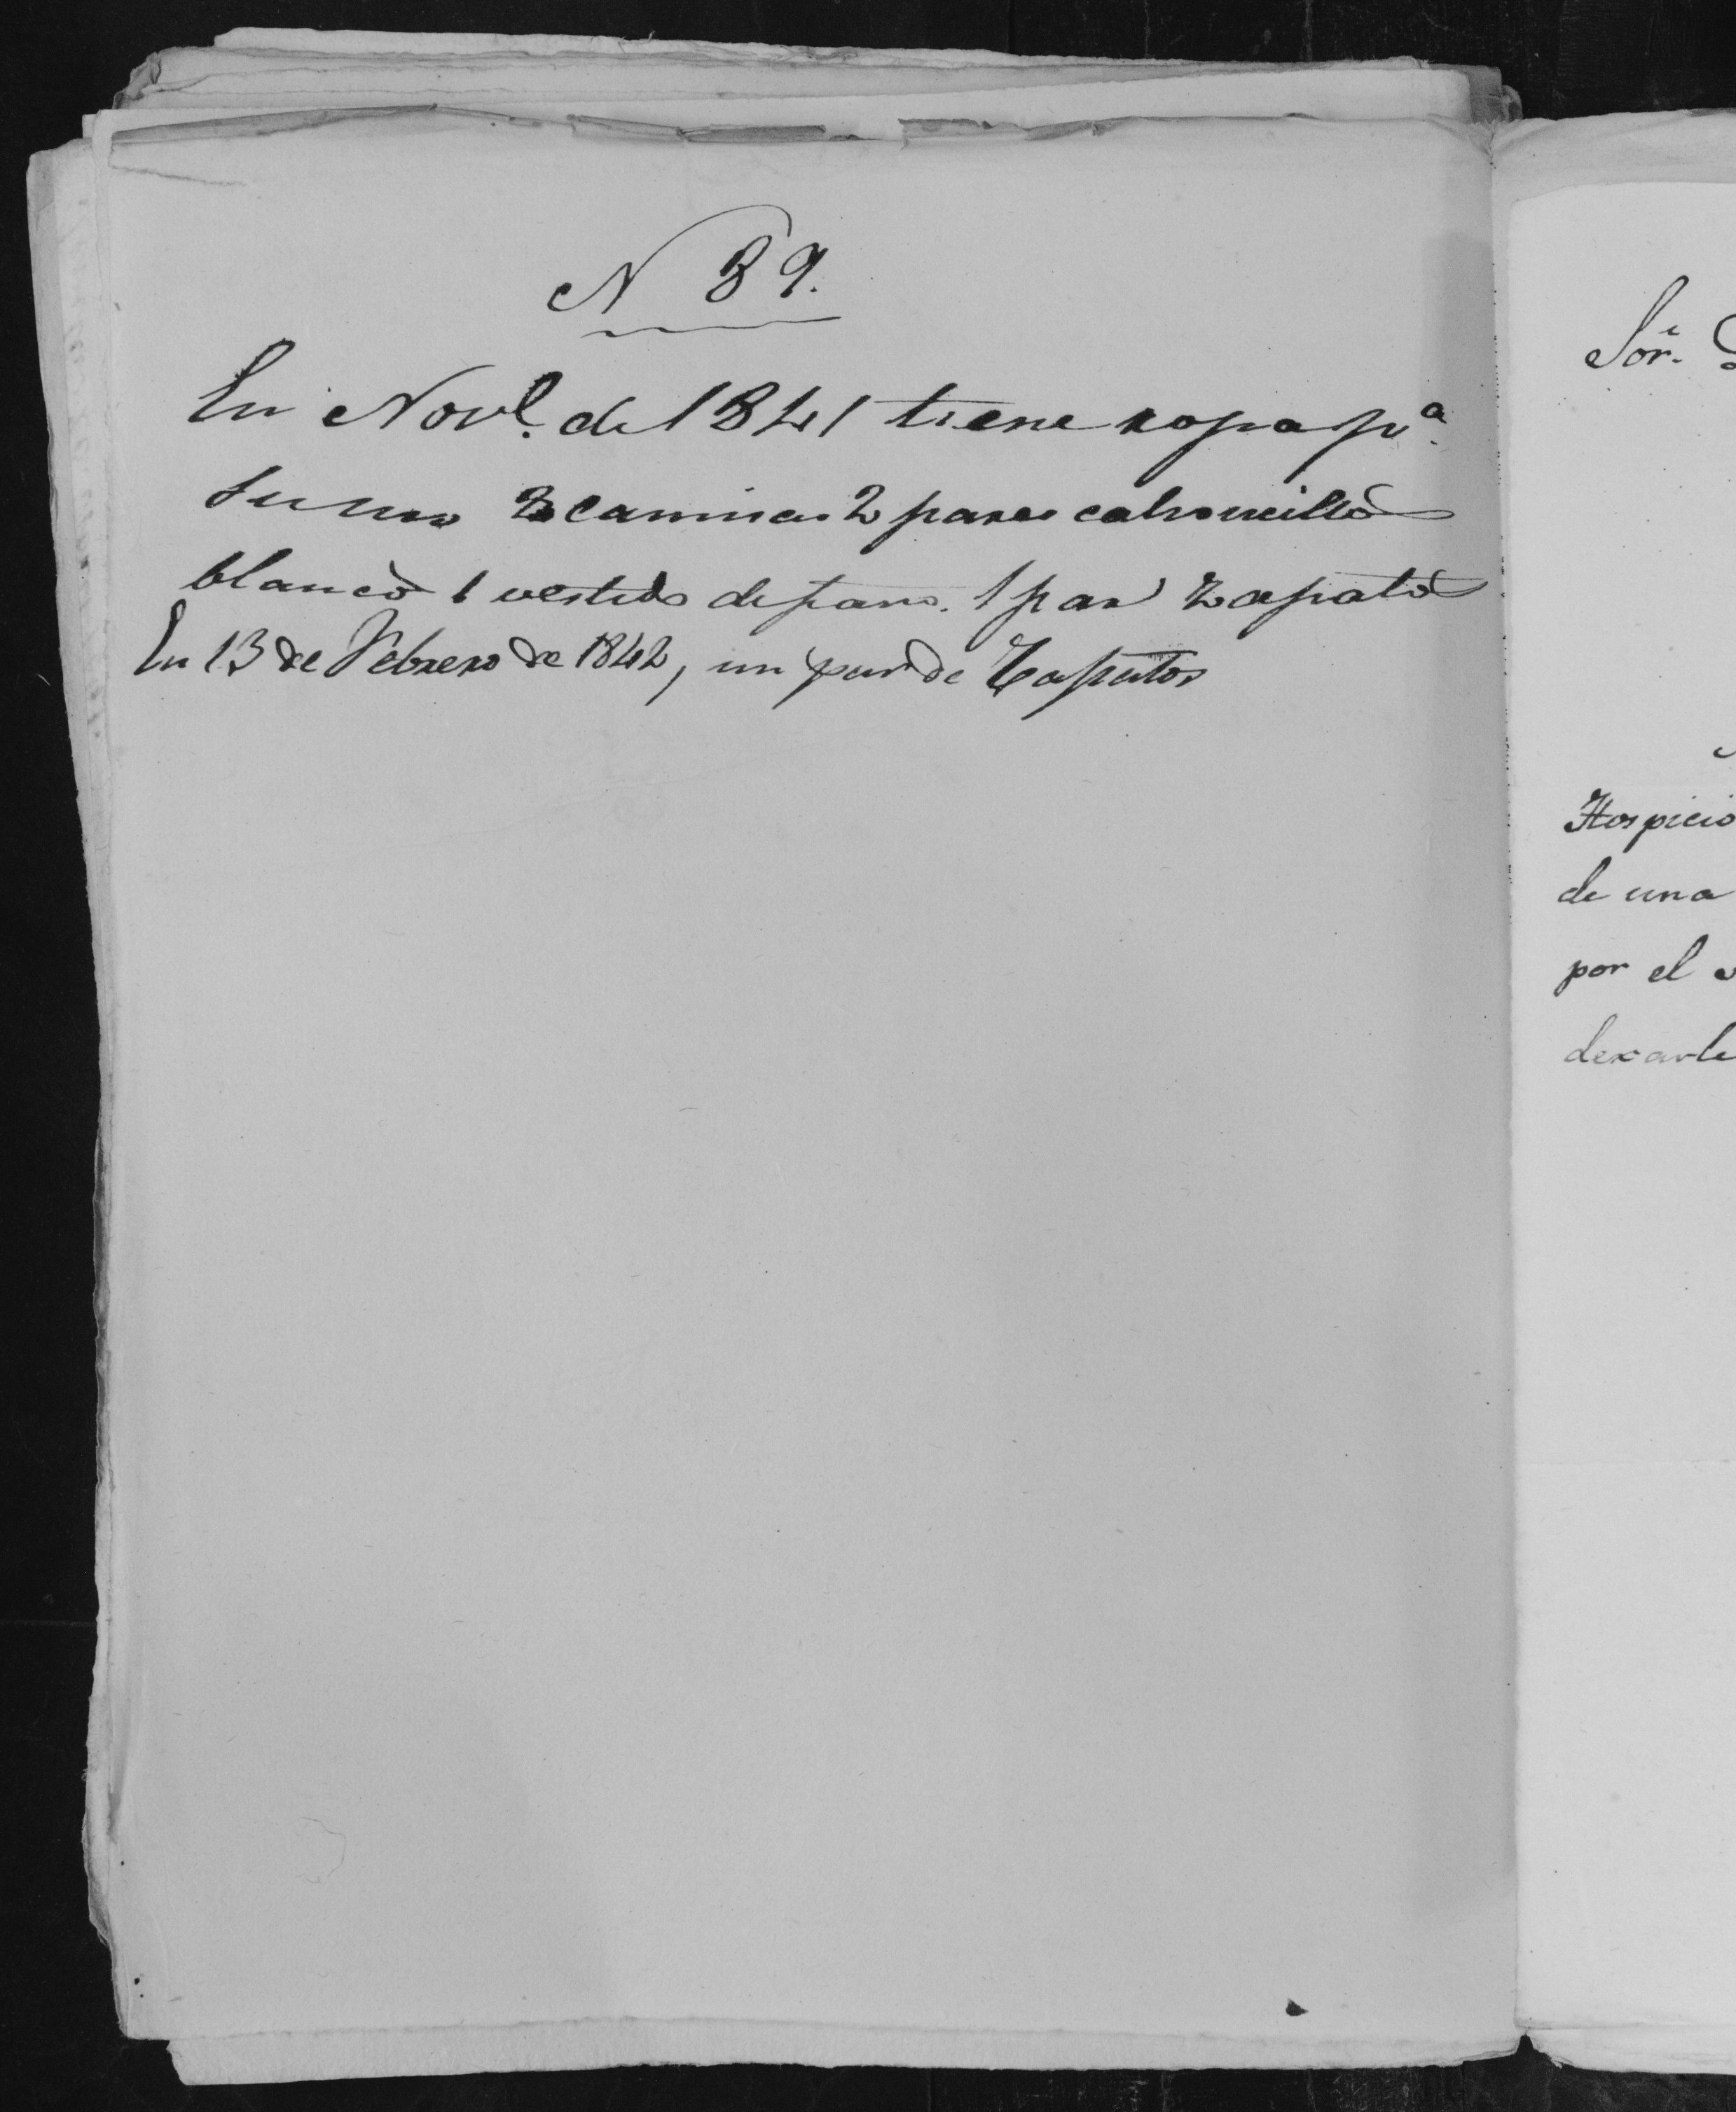 N 89.
En Nov.e de 1841 tiene ropa p.a
su uso 3 camisas 2 pares calsoncillos
blancos 1 vestido de pano. 1 par zapatos
En 13 de Febrero de 1842, un par de Zapatos
Sor.
Hospicio
de una
por el
dexarle